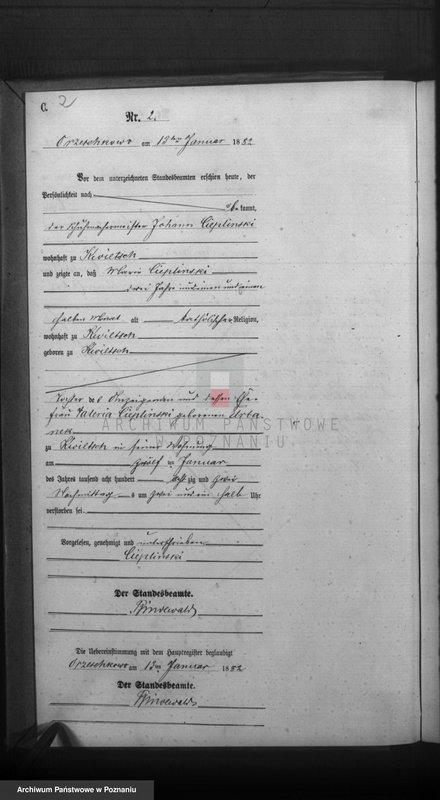 C. 2
Nr. 2.
Orzeschkowo am 13ten Januar 1882
Vor dem unterzeichneten Standesbeamten erschien heute, der
Persönlichkeit nach
be kannt,
der Schuhmachermeister Johann Cieplinski
wohnhaft zu Kwiltsch
und zeigte an, daß Maria Cieplinski
drei Jahre und einen
halben Monat alt katholischer Religion,
wohnhaft zu Kwiltsch
geboren zu Kwiltsch
Tochter des Anzeigenden und dessen Ehe-
frau Valeria Cieplinski geborenen Urba
nek
ARCHIWUM PAŃSTWOWE
W POZNANIU
zu Kwiltsch in seiner Wohnung
am zwölf ten Januar
des Jahres tausend acht hundert acht zig und zwei
Nachmittag s um zwei und ein halb Uhr
verstorben sei.
Vorgelesen, genehmigt und unterschrieben
Cieplinski
Der Standesbeamte.
Die Uebereinstimmung mit dem Hauptregister beglaubigt
Orzeschkowo am 13ten Januar 1882
Der Standesbeamte.
Archiwum Państwowe w Poznaniu